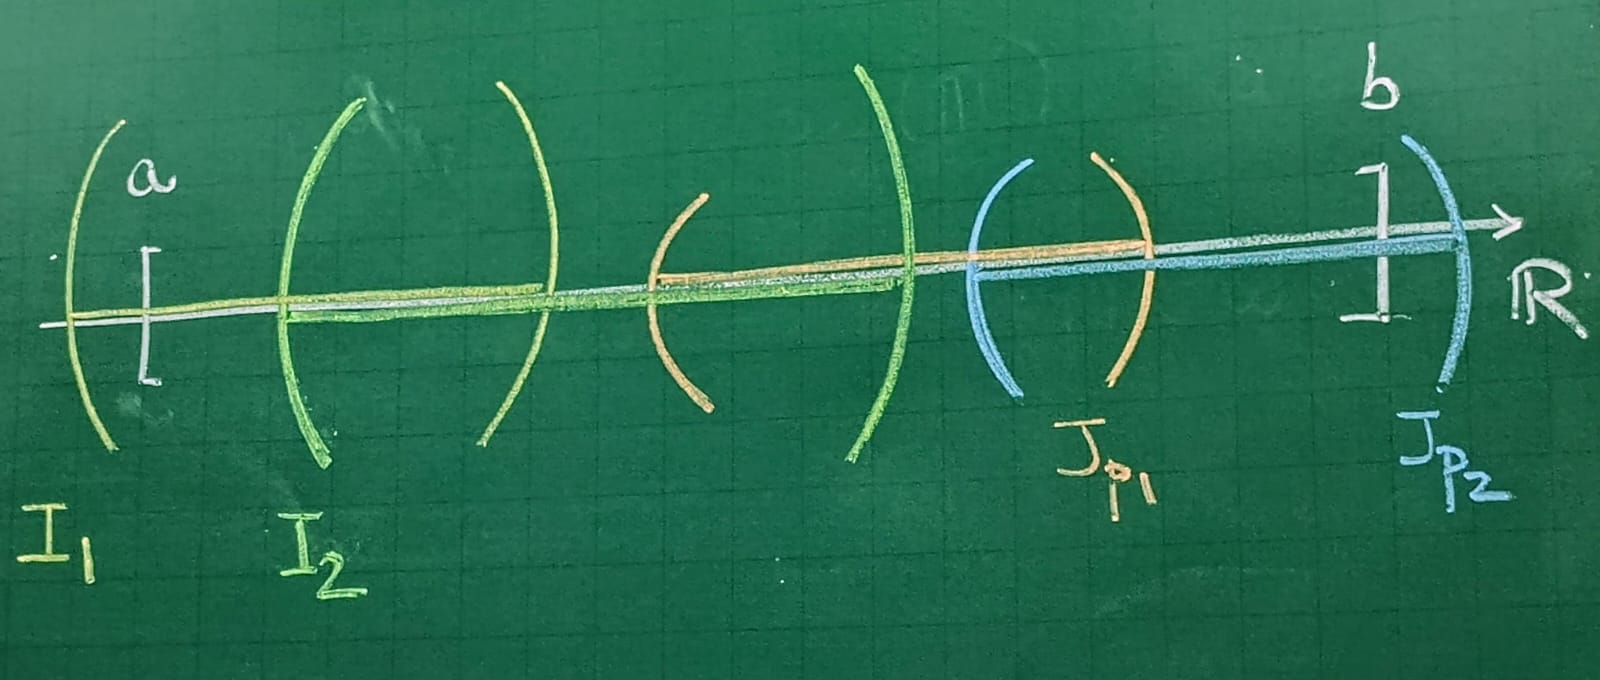 a
b
ℝ
I₁
I₂
Jₚ₁
Jₚ₂